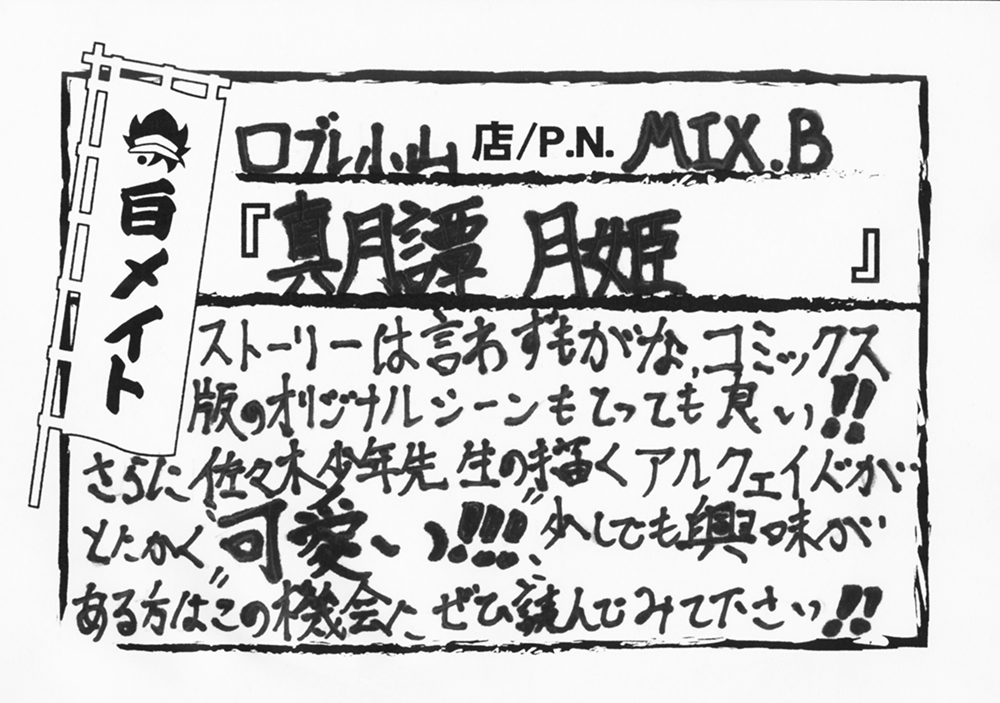 白メイト
ロブレ小山 店/P.N. MIX.B
『真月譚 月姫 』
ストーリーは言わずもがな、コミックス
版のオリジナルシーンもとっても良い!!
さらに佐々木少年先生の描くアルクェイドが
とにかく"可愛いっ!!!"少しでも興味が
ある方はこの機会にぜひ読んでみて下さいっ!!